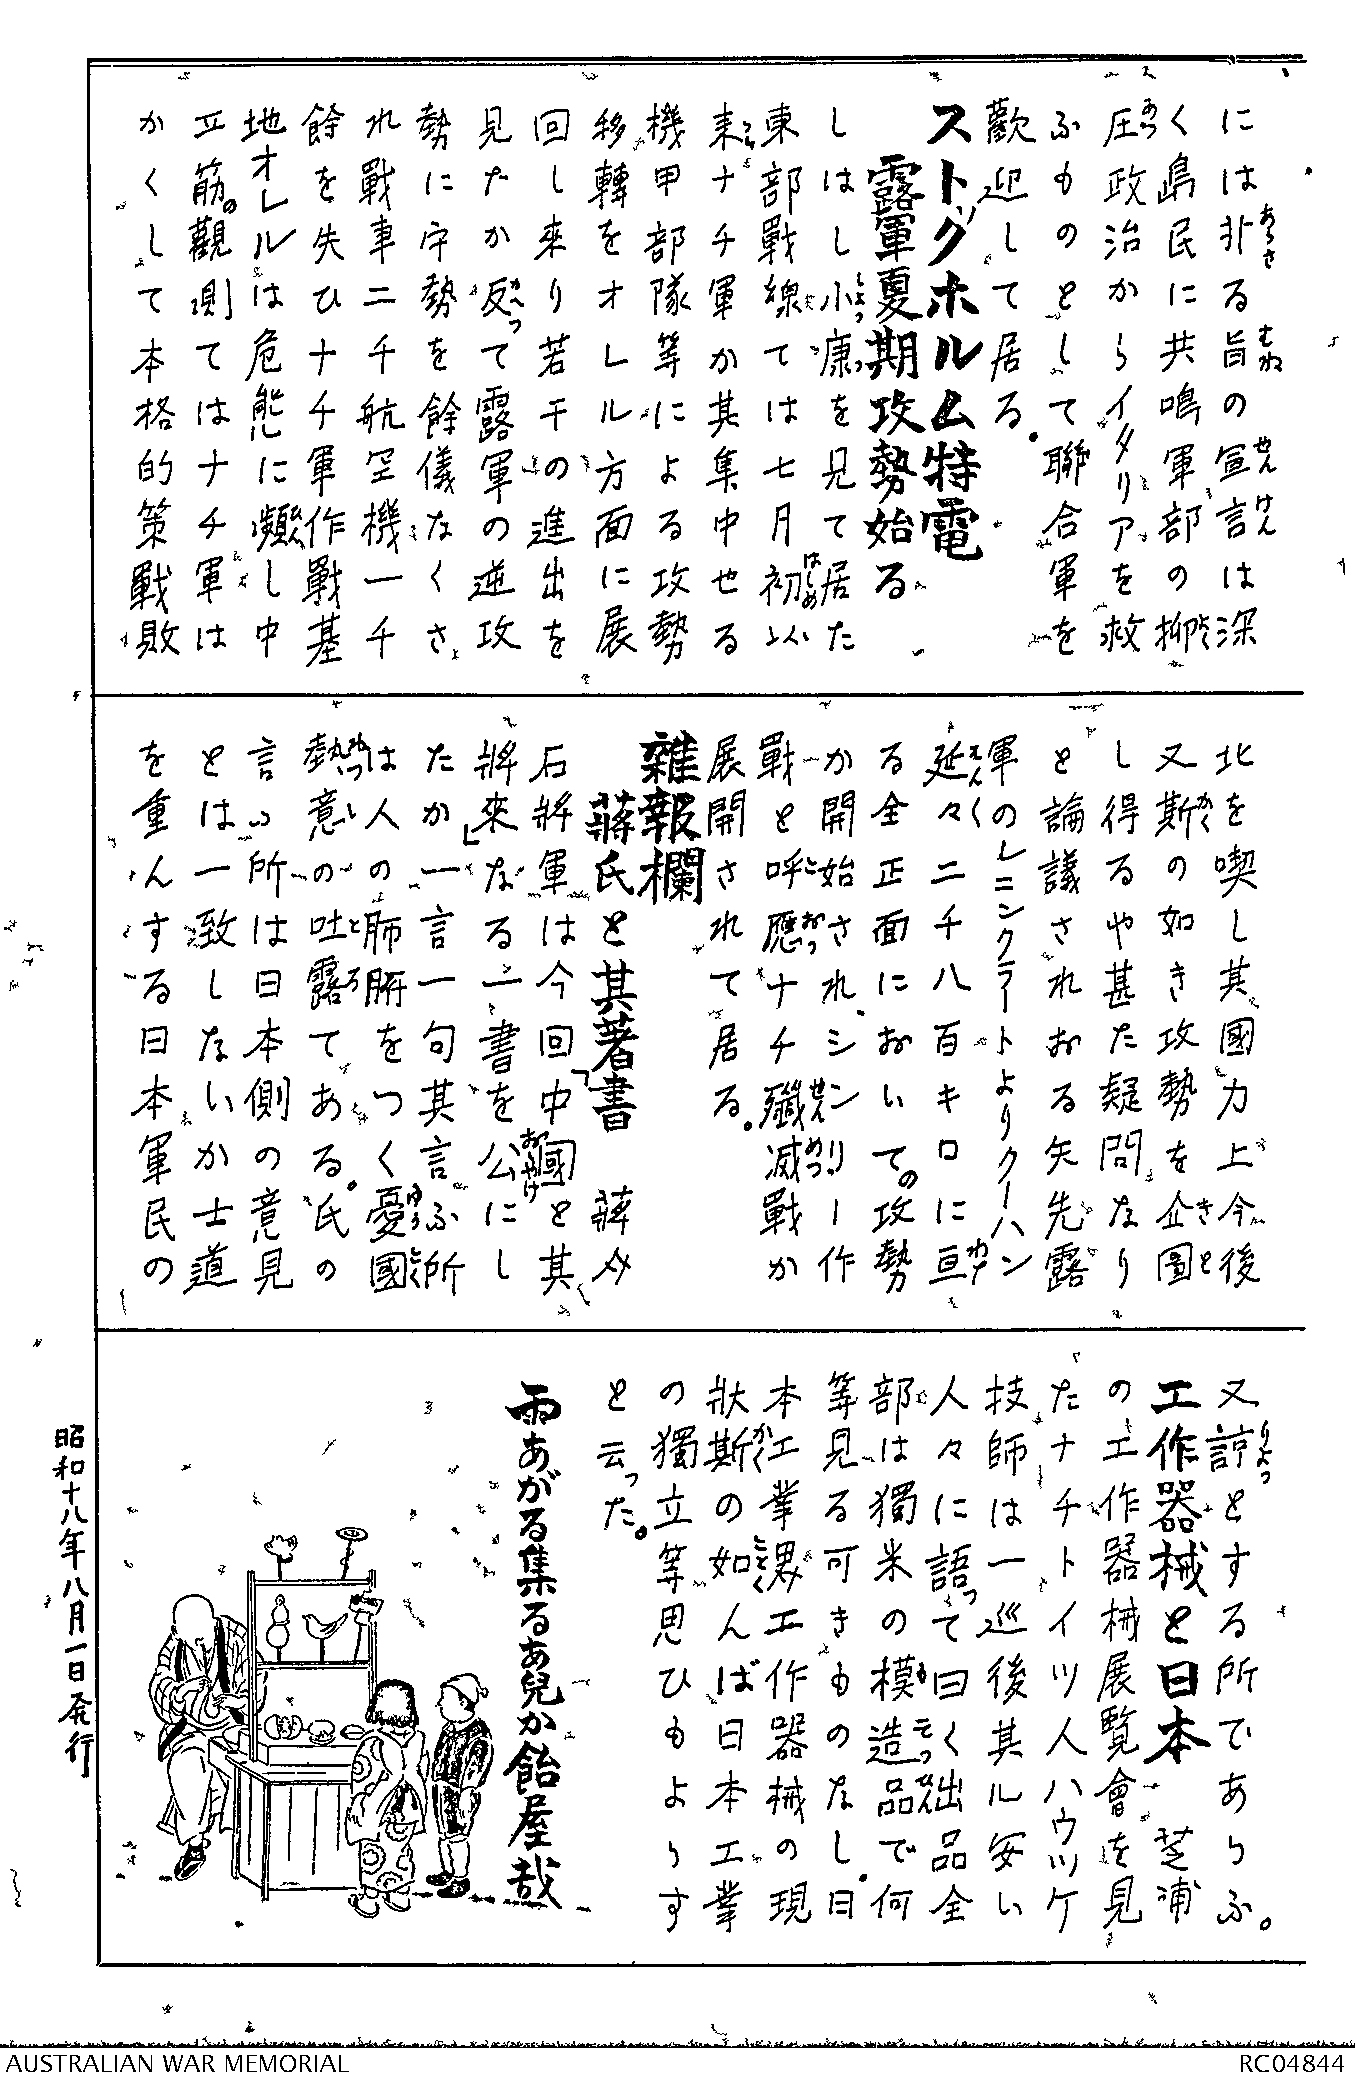 には非る旨の宣言は深
く島民に共鳴軍部の抑
圧政治からイタリアを救
ふものとして聯合軍を
歡迎して居る。
ストックホルム特電
露軍夏期攻勢始る
しはし小康を見て居た
東部戰線ては七月初以
来ナチ軍か其集中せる
機甲部隊等による攻勢
移轉をオレル方面に展
回し来り若干の進出を
見たか反って露軍の逆攻
勢に守勢を餘儀なくさ
れ戰車二千航空機一千
餘を失ひナチ軍作戰基
地オレルは危態に瀕し中
立筋の觀測てはナチ軍は
かくして本格的策戰敗
北を喫し其國力上今後
又斯の如き攻勢を企圖
し得るや甚た疑問なり
と論議されおる矢先露
軍のレニンクラートよりクーハン
延々二千八百キロに亘
る全正面においての攻勢
か開始されシンリー作
戰と呼應ナチ殲滅戰か
展開されて居る。
雑報欄
蔣氏と其著書 蔣介
石將軍は今回「中國と其
將來」なる一書を公にし
たか一言一句其言ふ所
は人の肺腑をつく憂國
熱意の吐露てある。氏の
言ふ所は日本側の意見
とは一致しないか士道
を重んする日本軍民の
又諒とする所であらふ。
工作器械と日本 芝浦
の工作器械展覧會を見
たナチトイツ人ハウツケ
技師は一巡後其ル安い
人々に語って曰く出品全
部は獨米の模造品で何
等見る可きものなし。日
本工業界工作器械の現
狀斯の如んば日本工業
の獨立等思ひもよらす
と云った。
雨あがる集るあ兒か飴屋哉
昭和十八年八月一日発行
AUSTRALIAN WAR MEMORIAL
RC04844